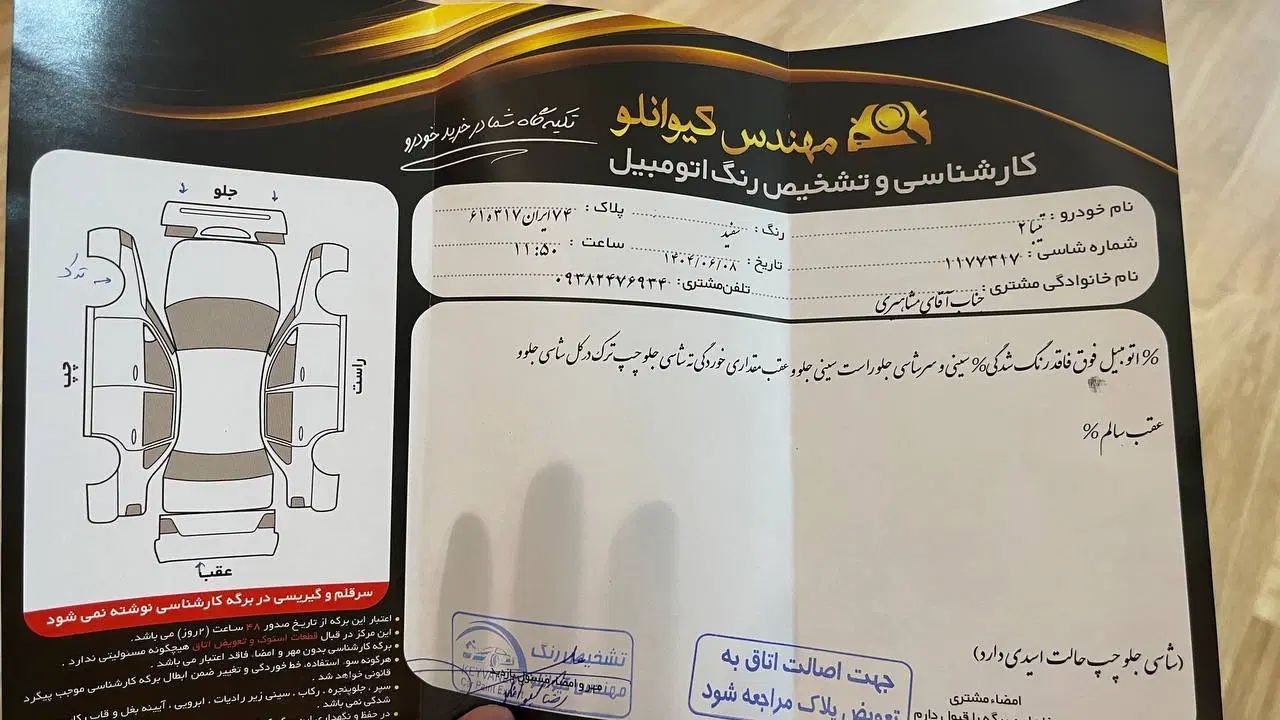 تکیه گاه شما در خرید خودرو
مهندس کیوانلو
کارشناسی و تشخیص رنگ اتومبیل
نام خودرو : تیبا ۲ رنگ : سفید پلاک : ۷۴ ایران ۳۱۷ ه ۶۱
شماره شاسی : ۱۱۷۷۳۱۷ تاریخ : ۱۴۰۴/۰۶/۰۸ ساعت : ۱۱:۵۰
نام خانوادگی مشتری : جناب آقای مشاهیری تلفن مشتری : ۰۹۳۸۲۴۷۶۹۳۴
% اتومبیل فوق فاقد رنگ شدگی % سینی و سرشاسی جلو راست سینی جلو و عقب مقداری خوردگی ته شاسی جلو چپ ترک در کل شاسی جلو و
عقب سالم %
(شاسی جلو چپ حالت اسیدی دارد)
جلو
ترک
چپ
راست
عقب
سرقلم و گیریسی در برگه کارشناسی نوشته نمی شود
اعتبار این برگه از تاریخ صدور ۴۸ ساعت (۲روز) می باشد.
این مرکز در قبال قطعات استوک و تعویض اتاق هیچگونه مسئولیتی ندارد .
برگه کارشناسی بدون مهر و امضاء، فاقد اعتبار می باشد .
هرگونه سوء استفاده، خط خوردگی و تغییر ضمن ابطال برگه کارشناسی موجب پیگرد
قانونی خواهد شد .
سپر ، جلوپنجره ، رکاب ، سینی زیر رادیات ، ابرویی ، آیینه بغل و قاب رکاب
شدگی نمی باشد .
در حفظ و نگهداری این
تشخیص رنگ
مهندس
جهت اصالت اتاق به
تعویض پلاک مراجعه شود
امضاء مشتری